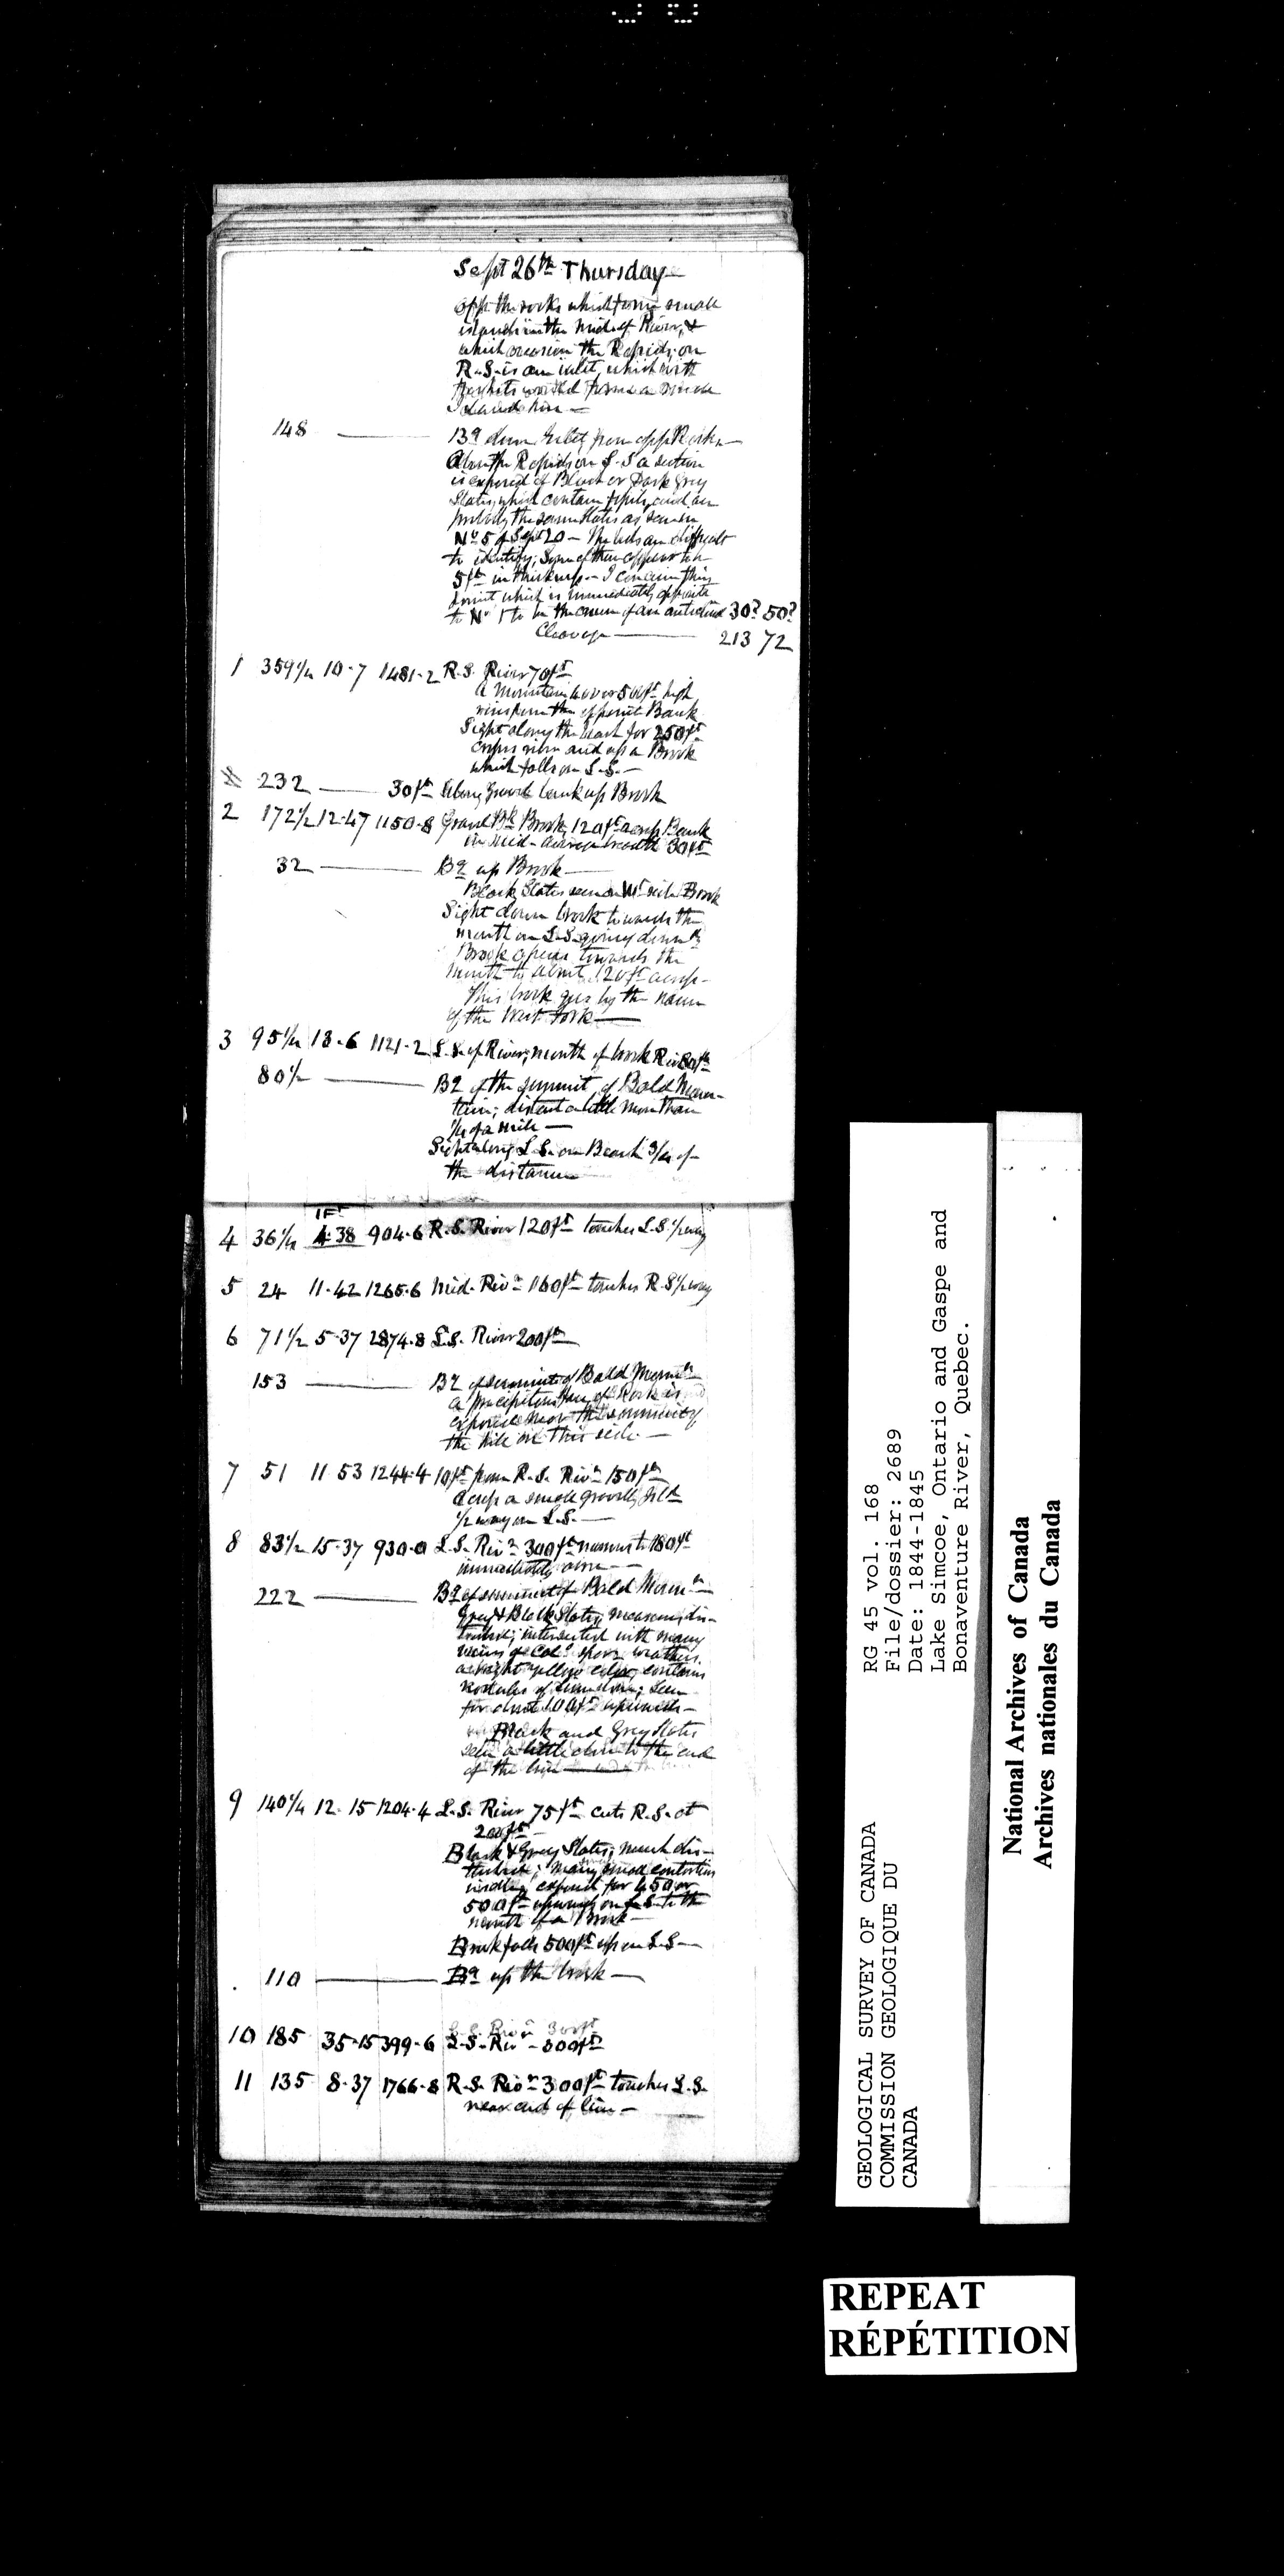 Sept 26th Thursday
opp. the rocks which form small
islands in the mid of River, &
which occasion the Rapids; on
R.S. is an inlet, which with
freshets would form a
Island
148 — Bg down Inlet from opp Rocks —
Above the Rapids on L.S a section
is exposed of Black or Dark Grey
Slates, which contain fossils, and are
probably the same Slates as seen in
No 5 of Sept 20 — The beds are difficult
to identify; Some of them appear to be
5ft in thickness — I conceive this
point which is immediately opposite
to No 1 to be the crown of an anticlinal 30? 50?
Cleavage — 213 72
1 359½ 10-7 1481-2 R.S. River 70ft
A Mountain 4 over 500ft high
rises from the opposite Bank
Sight along the beach for 250ft
cross river and up a Brook
which falls on L.S. —
232 — 30ft along Gravel bank up Brook
2 172½ 12-47 1150-8 Gravel Bk Brook, 120ft across Bank
in mid - average breadth 30ft
32 — Bg up Brook —
Black Slates seen on side Brook
Sight down brook towards the
mouth on L.S. going down the
Brook opens towards the
mouth to about 120ft across -
This brook goes by the name
of the West fork —
3 95¼ 13-6 1121-2 L.S. of River, mouth of brook Riv 80ft
80½ — Bg of the summit of Bald Moun-
tain; distant a little more than
¼ of a mile —
Sight along L.S. on Beach 3/4 of
the distance
1Ft
4 36¼ 4-38 904-6 R.S. River 120ft touches L.S. ½ way
5 24 11-42 1265-6 Mid. Rivr 160ft touches R.S ½ way
6 71½ 5-37 2874-8 L.S. River 200ft
153 — Bg of summit of Bald Mountn
a precipitous face of Rock is
exposed near the summit of
the hill on this side. —
7 51 11 53 1244-4 10ft from R.S. Rivr 150ft
across a small gravelly Isld
½ way on L.S. —
8 83½ 15-37 930-0 L.S. Rivr 300ft narrows to 180ft
immediately above —
222 — Bg of summit of Bald Mountn —
Grey & Black Slates, measures dis-
turbed; intersected with many
veins of Calc spar, weathers
a bright yellow color, contains
nodules of limestone; Seen
for about 100ft upwards —
Black and Grey Slates
seen a little close to the end
of the line —
9 140¼ 12-15 1204-4 L.S. River 75ft cuts R.S. at
200ft
Black & Grey Slates, much dis-
turbed; many small contortions
exposed for 450 or
500ft upwards on L.S. to the
mouth of a Brook —
Brook falls 500ft up on L.S —
110 — Bg up the brook —
L.S. Rivr 300ft
10 185 35-15 399-6 L.S. Rivr - 300ft
11 135 8-37 1766-8 R.S. Rivr 300ft touches L.S.
near end of line —
GEOLOGICAL SURVEY OF CANADA
COMMISSION GEOLOGIQUE DU
CANADA
RG 45 vol. 168
File/dossier: 2689
Date: 1844-1845
Lake Simcoe, Ontario and Gaspe and
Bonaventure River, Quebec.
National Archives of Canada
Archives nationales du Canada
REPEAT
RÉPÉTITION